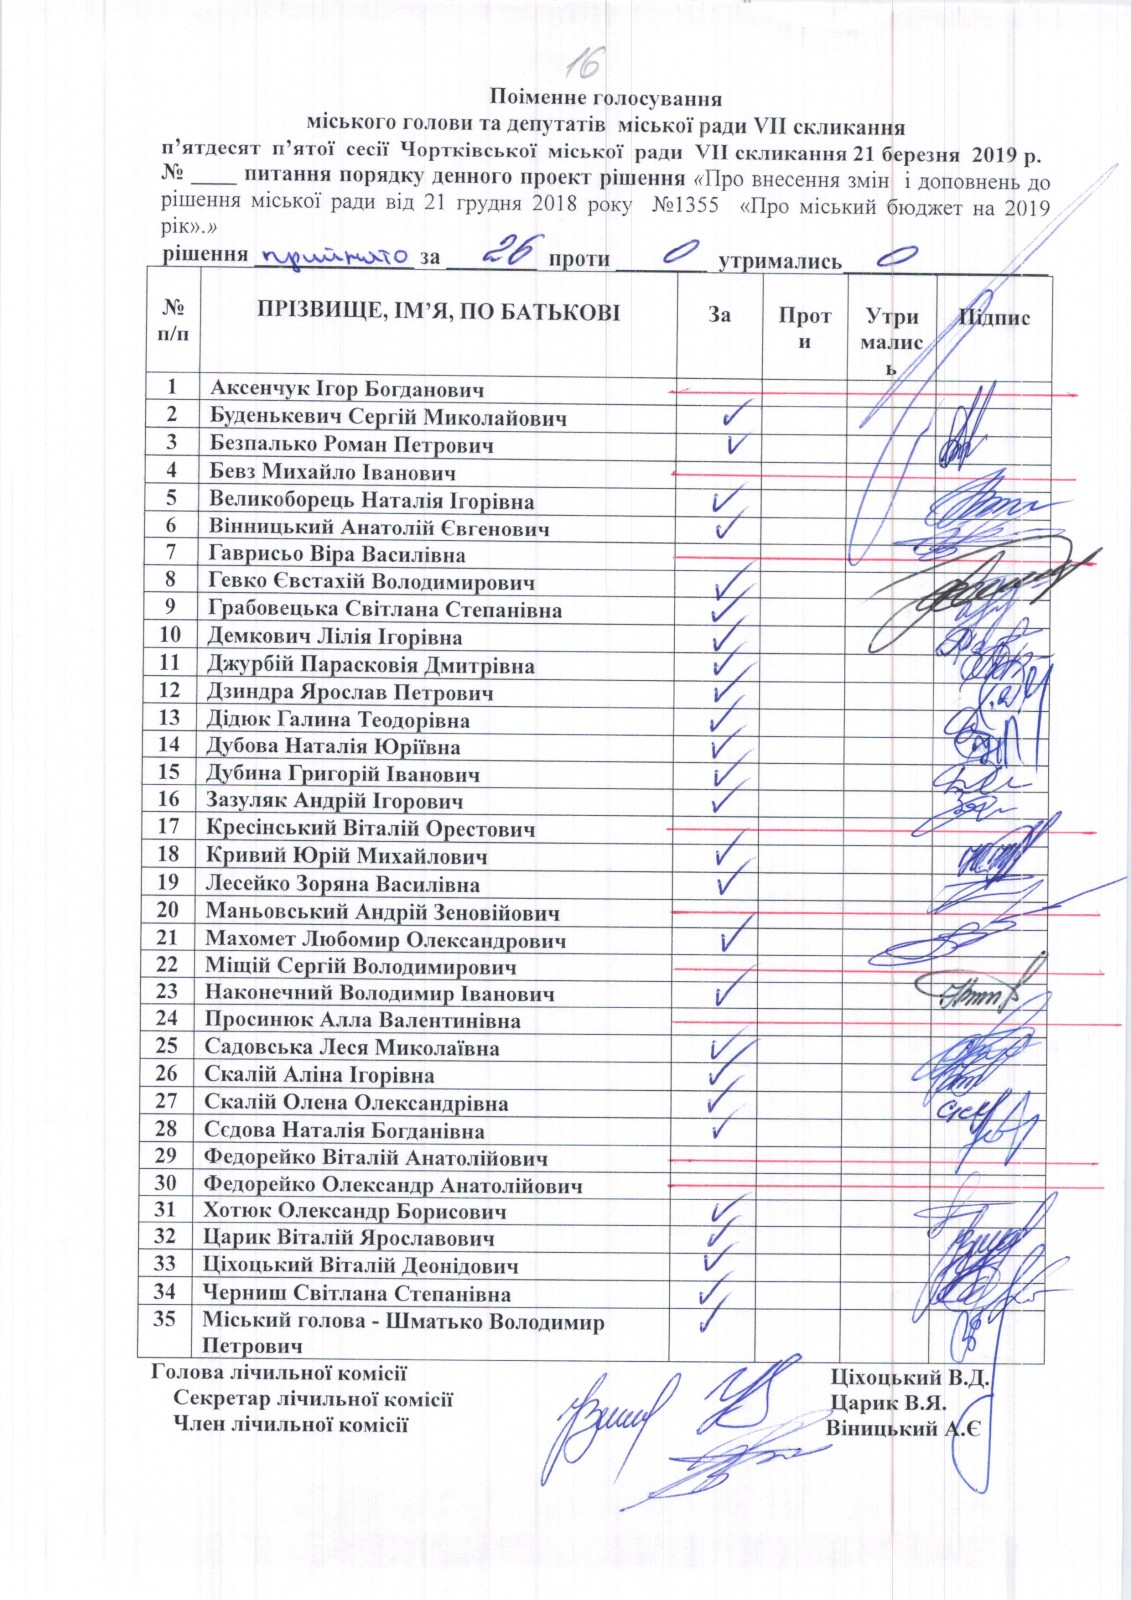 16
Поіменне голосування
міського голови та депутатів міської ради VII скликання
п’ятдесят п’ятої сесії Чортківської міської ради VII скликання 21 березня 2019 р.
№ ____ питання порядку денного проект рішення «Про внесення змін і доповнень до
рішення міської ради від 21 грудня 2018 року №1355 «Про міський бюджет на 2019
рік».»
рішення прийнято за 26 проти 0 утримались 0
№ п/п ПРІЗВИЩЕ, ІМ’Я, ПО БАТЬКОВІ За Проти Утримались Підпис
1 Аксенчук Ігор Богданович
2 Буденькевич Сергій Миколайович ✓
3 Безпалько Роман Петрович ✓
4 Бевз Михайло Іванович
5 Великоборець Наталія Ігорівна ✓
6 Вінницький Анатолій Євгенович ✓
7 Гаврисьо Віра Василівна
8 Гевко Євстахій Володимирович ✓
9 Грабовецька Світлана Степанівна ✓
10 Демкович Лілія Ігорівна ✓
11 Джурбій Парасковія Дмитрівна ✓
12 Дзиндра Ярослав Петрович ✓
13 Дідюк Галина Теодорівна ✓
14 Дубова Наталія Юріївна ✓
15 Дубина Григорій Іванович ✓
16 Зазуляк Андрій Ігорович ✓
17 Кресінський Віталій Орестович
18 Кривий Юрій Михайлович ✓
19 Лесейко Зоряна Василівна ✓
20 Маньовський Андрій Зеновійович
21 Махомет Любомир Олександрович ✓
22 Міщій Сергій Володимирович
23 Наконечний Володимир Іванович ✓
24 Просинюк Алла Валентинівна
25 Садовська Леся Миколаївна ✓
26 Скалій Аліна Ігорівна ✓
27 Скалій Олена Олександрівна ✓
28 Сєдова Наталія Богданівна ✓
29 Федорейко Віталій Анатолійович
30 Федорейко Олександр Анатолійович
31 Хотюк Олександр Борисович ✓
32 Царик Віталій Ярославович ✓
33 Ціхоцький Віталій Деонідович ✓
34 Черниш Світлана Степанівна ✓
35 Міський голова - Шматько Володимир ✓
Петрович
Голова лічильної комісії Ціхоцький В.Д.
Секретар лічильної комісії Царик В.Я.
Член лічильної комісії Віницький А.Є